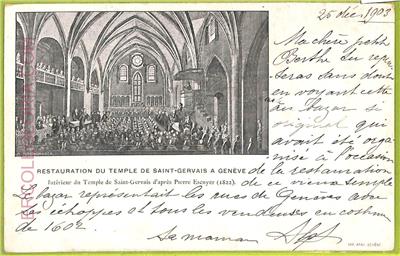 25 déc. 1903
Ma chère petite
Berthe tu repen
seras sans doute
en voyant cette
au bazar si
original qui
avait été orga
nisé à l'occasion
RESTAURATION DU TEMPLE DE SAINT-GERVAIS A GENÈVE
de la restauration
Intérieur du Temple de Saint-Gervais d'après Pierre Escuyer (1822).
de ce vieux temple
Le bazar représentait les rues de Genève avec
ses échoppes et tous les vendeuses en costume
de 1602.
Sa maman